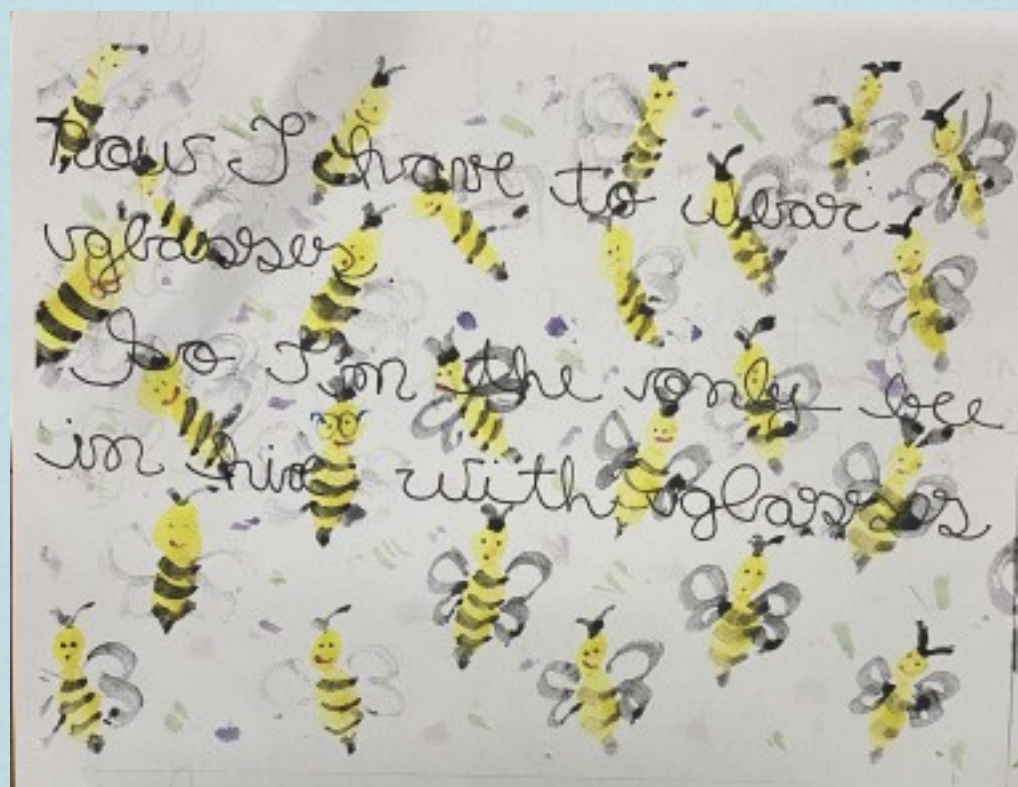 now I have to wear
glasses
So I'm the only bee
in hive with glasses